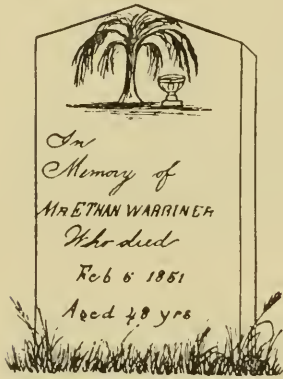 In
Memory of
Mr ETHAN WARRINER
Who died
Feb 6 1851
Aged 48 yrs